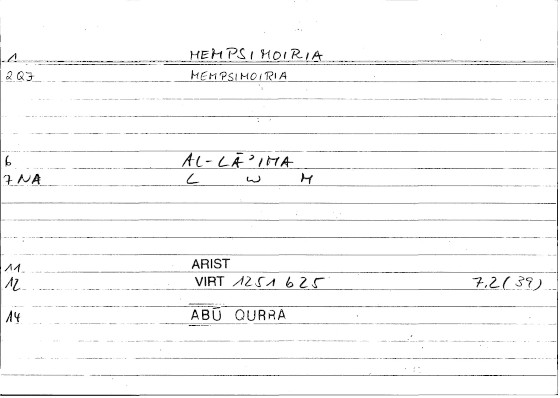 1 MEMPSIMOIRIA
2 QJ MEMPSIMOIRIA
6 AL-LĀ’IMA
7 NA L W M
11 ARIST
12 VIRT 1251 b 25 7.2 (39)
14 ABŪ QURRA